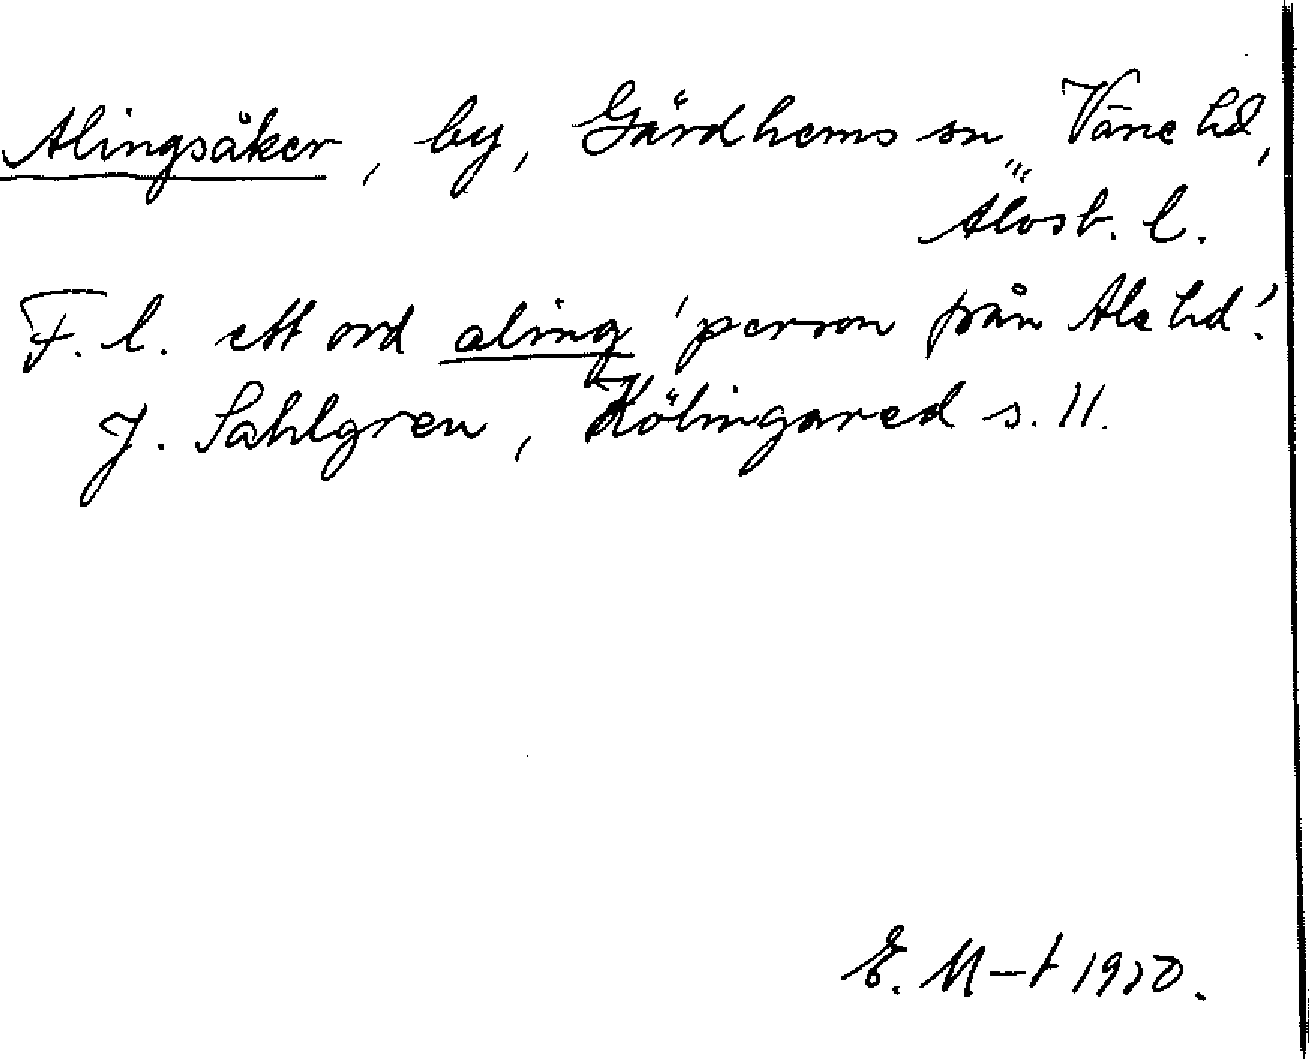 Alingsåker, by, Gärdhems sn, Väne hd,
Älvsb. l.
F. l. ett ord aling 'person från Ale hd'.
J. Sahlgren, Kölingared s. 11.
E. M-t 1920.